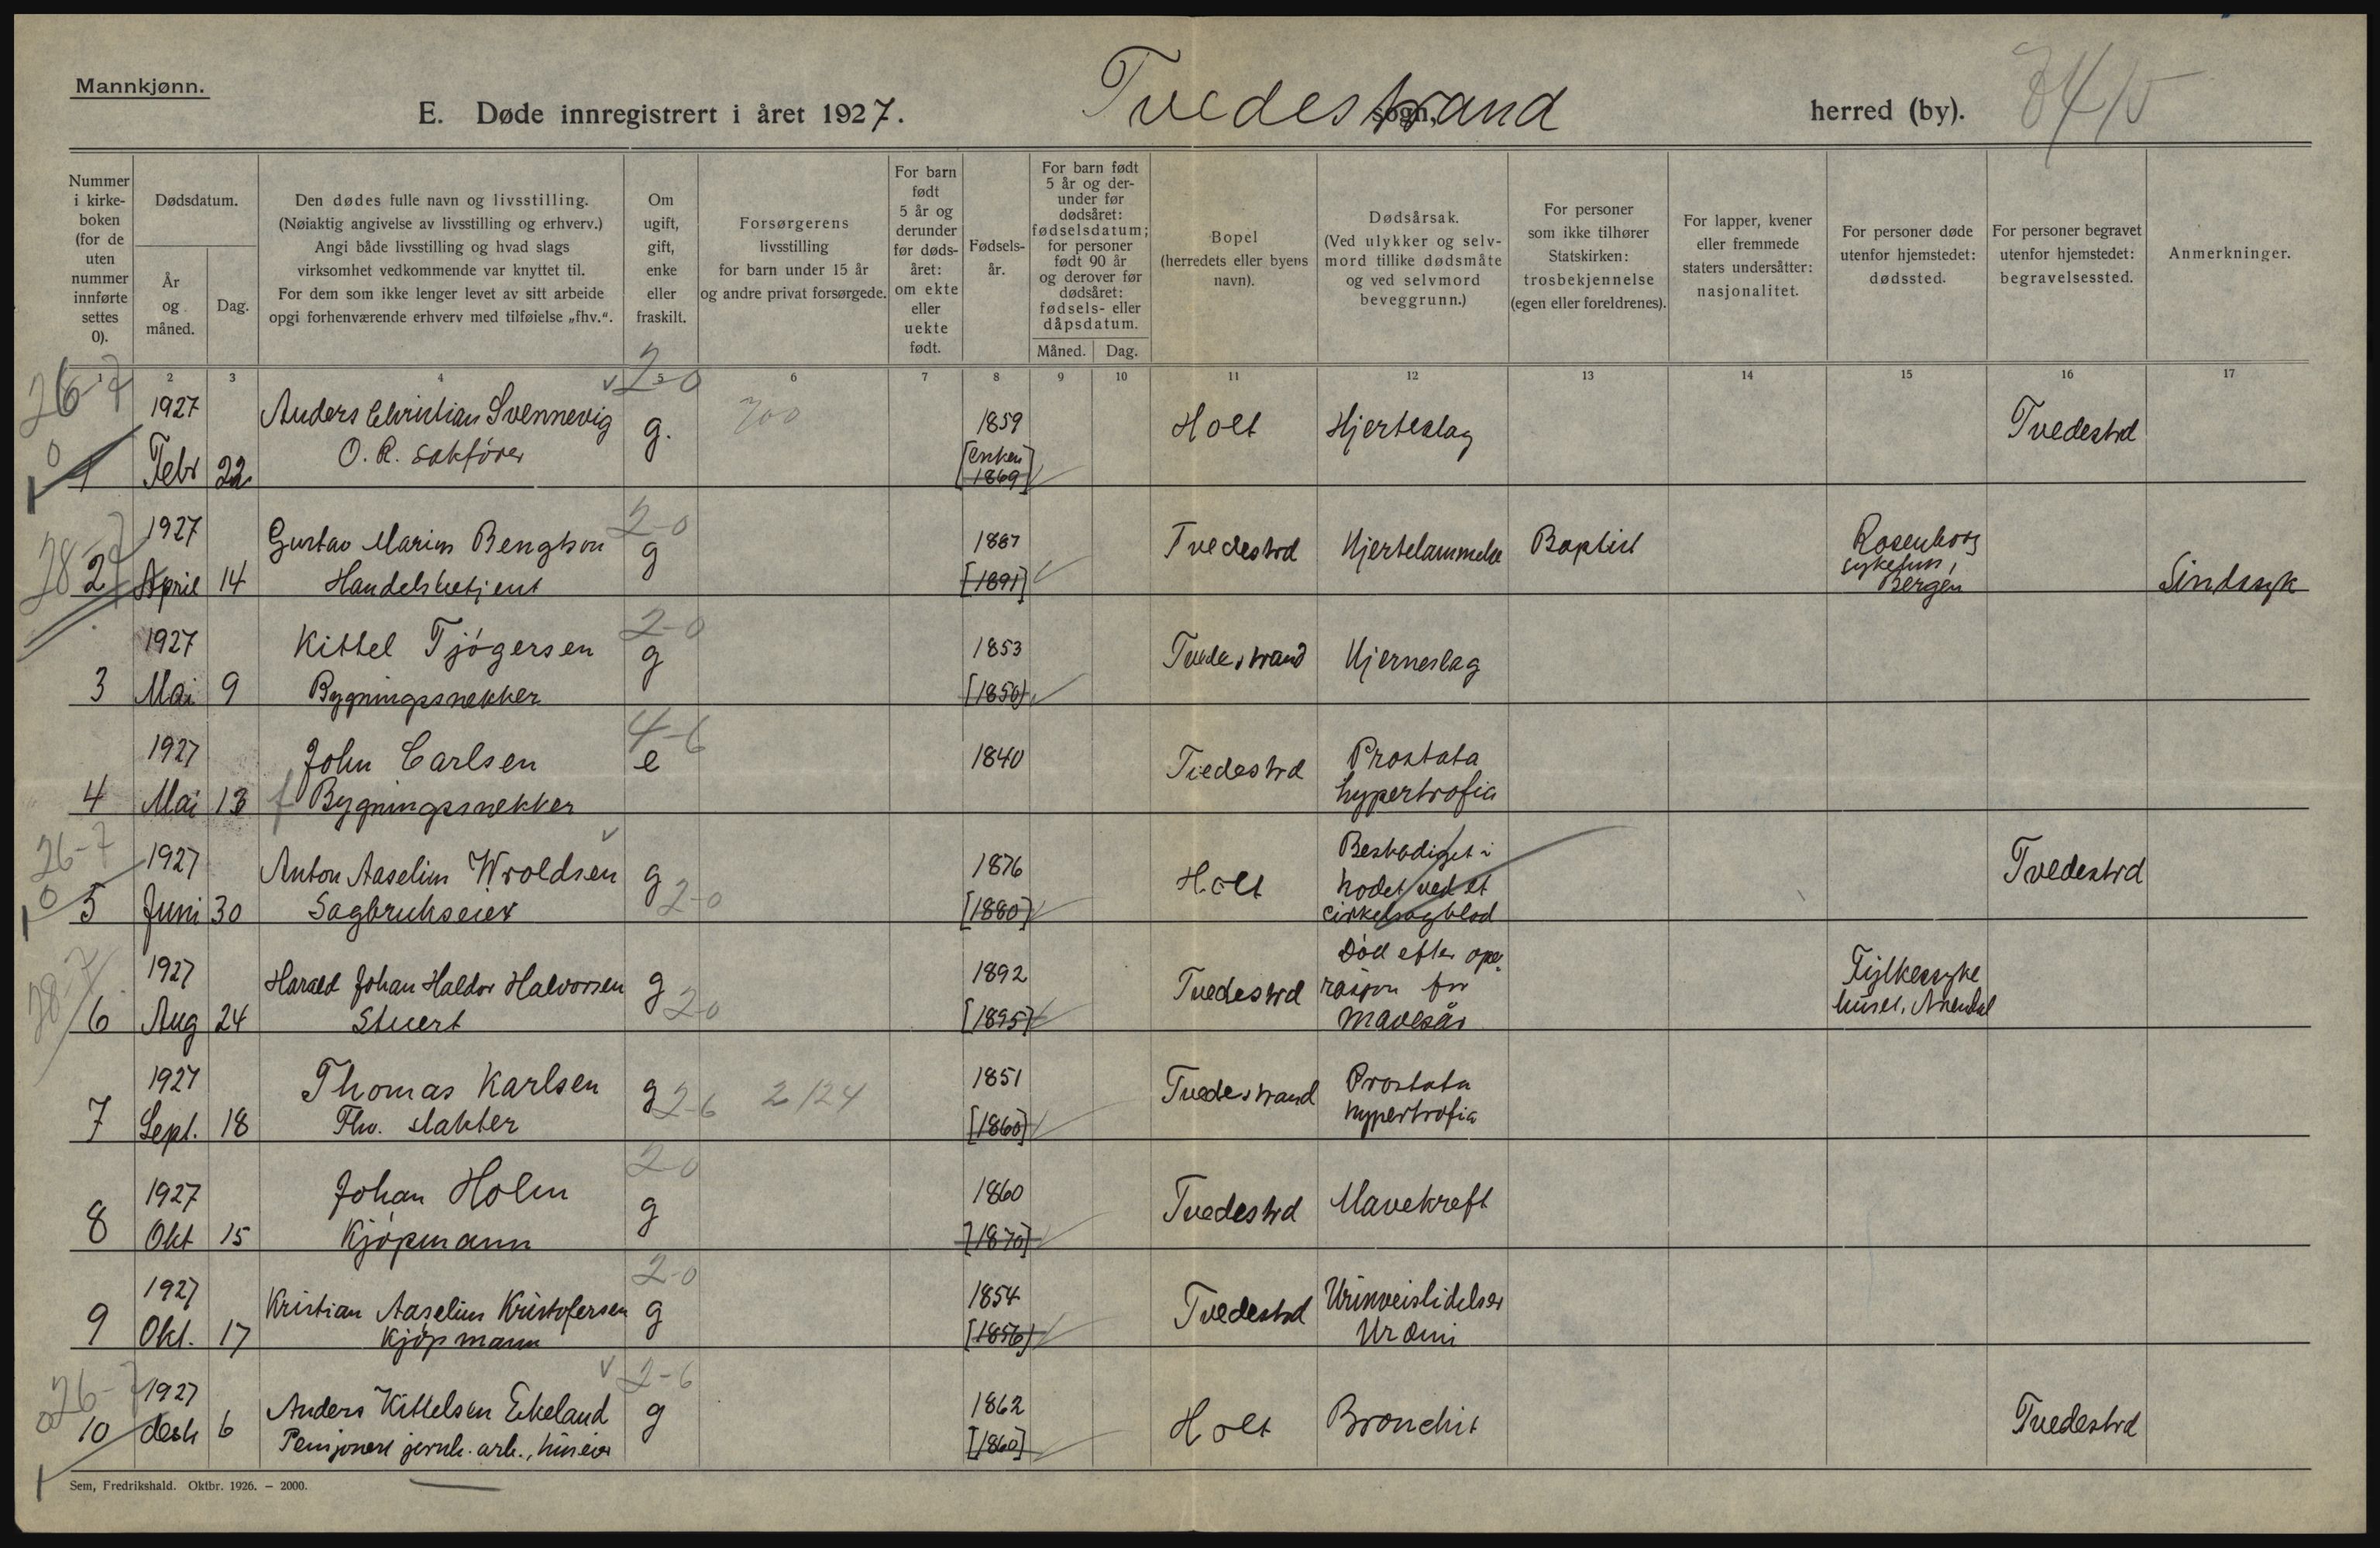 Mannkjønn.
E. Døde innregistrert i året 1927.
Tvedestrand
sogn,
herred (by).
Nummer i kirke- boken (for de uten nummer innførte settes 0).
Dødsdatum.
År og måned.
Dag.
Den dødes fulle navn og livsstilling.
(Nøiaktig angivelse av livsstilling og erhverv.)
Angi både livsstilling og hvad slags
virksomhet vedkommende var knyttet til.
For dem som ikke lenger levet av sitt arbeide
opgi forhenværende erhverv med tilføielse „fhv.“.
Om ugift, gift, enke eller fraskilt.
Forsørgerens
livsstilling
for barn under 15 år
og andre privat forsørgede.
For barn født 5 år og derunder før døds- året: om ekte eller uekte født.
Fødsels- år.
For barn født 5 år og der- under før dødsåret: fødselsdatum; for personer født 90 år og derover før dødsåret: fødsels- eller dåpsdatum.
Måned. Dag.
Bopel
(herredets eller byens
navn).
Dødsårsak.
(Ved ulykker og selv-
mord tillike dødsmåte
og ved selvmord
beveggrunn.)
For personer
som ikke tilhører
Statskirken:
trosbekjennelse
(egen eller foreldrenes).
For lapper, kvener
eller fremmede
staters undersåtter:
nasjonalitet.
For personer døde
utenfor hjemstedet:
dødssted.
For personer begravet
utenfor hjemstedet:
begravelsessted.
Anmerkninger.
1 2 3 4 5 6 7 8 9 10 11 12 13 14 15 16 17
26-7 2-0
1927 Anders Christian Svennevig g. 700 1859 Holt Hjerteslag Tvedestrd
1 Febr 22 O. R. sakfører [enken 1869]
28-7 2-0
1927 Gustav Marius Bengtson g 1887 Tvedestrd Hjertelammelse Baptist Rosenborg sykehus, Bergen
2 April 14 Handelsbetjent [1891] Sindssyk
2-0
1927 Kittel Tjøgersen g 1853 Tvedestrand Hjerneslag
3 Mai 9 Bygningssnekker [1850]
4-6
1927 John Carlsen e 1840 Tvedestrd Prostata
4 Mai 13 f Bygningssnekker hypertrofia
26-7
1927 Anton Aaselius Wroldsen g 2-0 1876 Holt Beskadiget i hodet ved et cirkelsagblad Tvedestrd
5 Juni 30 Sagbrukseier [1880]
28-7
1927 Harald Johan Haldor Halvorsen g 2-0 1892 Tvedestrd Død efter ope- rasjon for mavesår Fylkessyke huset, Arendal
6 Aug 24 Stuert [1895]
1927 Thomas Karlsen g 2-6 2124 1851 Tvedestrand Prostata
7 Sept. 18 Fhv. slakter [1860] hypertrofia
2-0
1927 Johan Holm g 1860 Tvedestrd Mavekreft
8 Okt 15 Kjøpmann [1870]
2-0
1927 Kristian Aaselius Kristofersen g 1854 Tvedestrd Urinveislidelser
9 Okt. 17 Kjøpmann [1856] Uræmi
26-7 2-6
1927 Anders Kittelsen Ekeland g 1862 Holt Bronchit Tvedestrd
10 desb 6 Pensjonert jernb. arb., huseier [1860]
Sem, Fredrikshald. Oktbr. 1926. – 2000.